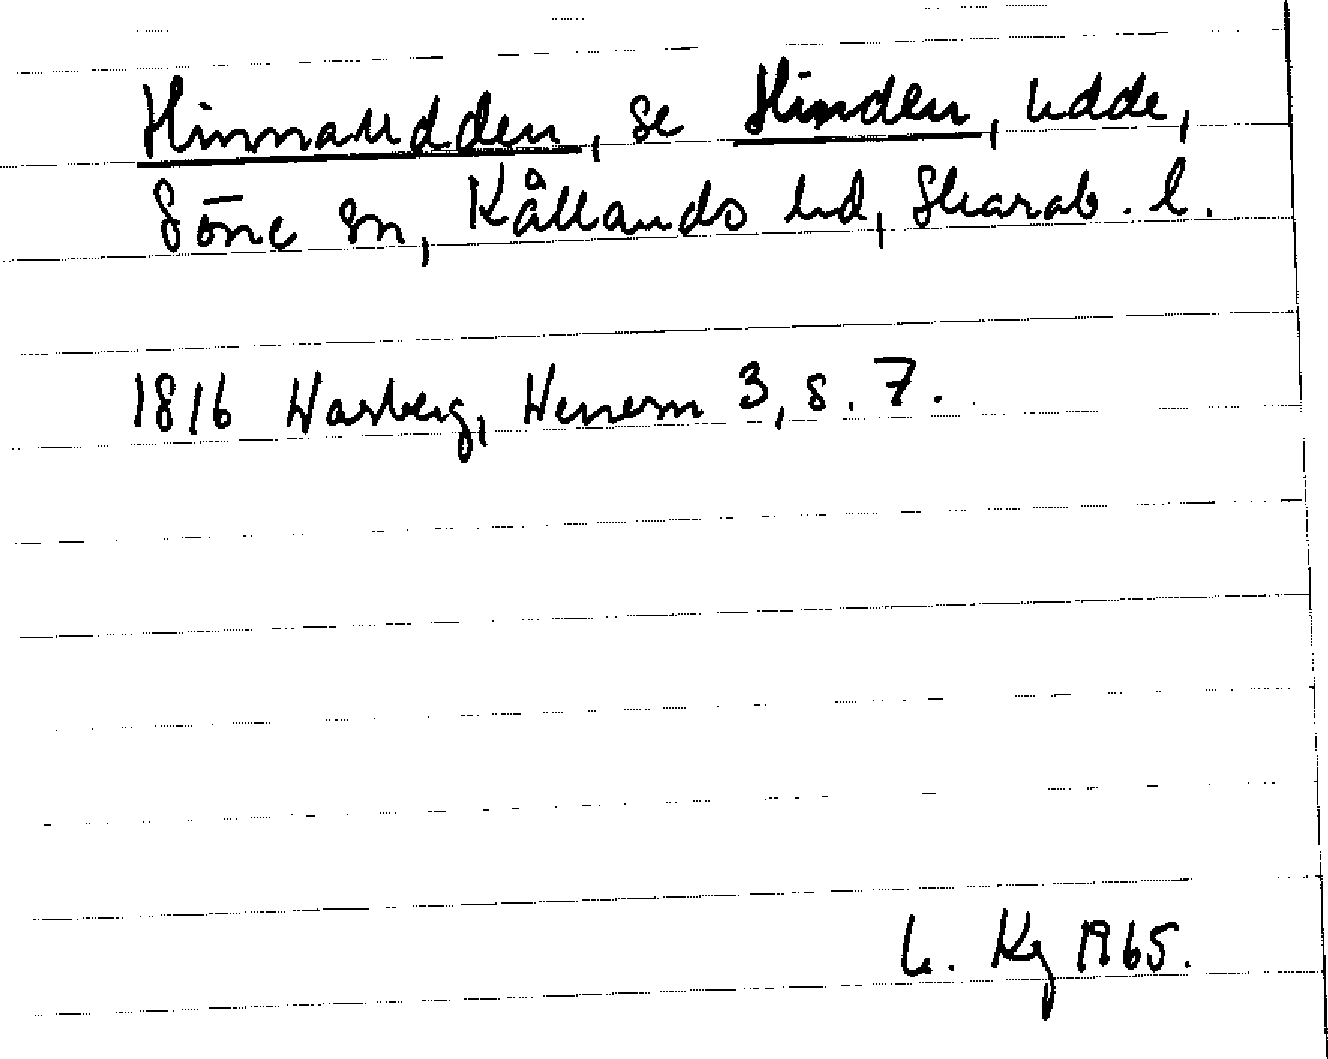 Hinnaudden, se Hinden, udde,
Söne sn, Kållands hd, Skarab. l.
1816 Warberg, Wenern 3, s. 7.
L. Kg 1965.